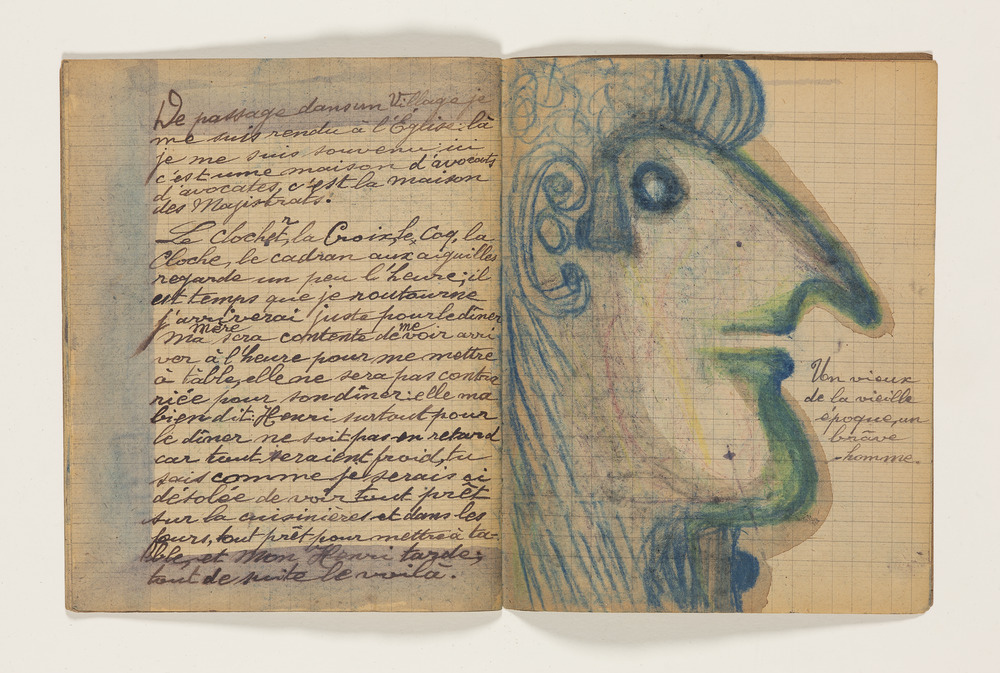 De passage dans un Village je
me suis rendu à l'Église: là
je me suis souvenu: ici
c'est une maison d'avocats
d'avocates, c'est la maison
des Magistrats.
Le clocher, la Croix, le Coq, la
Cloche, le cadran aux aiguilles
regarde un peu l'heure; il
est temps que je routourne
j'arriverai juste pour le dîner
ma mère sera contente de me voir arri
ver à l'heure pour me mettre
à table, elle ne sera pas contra
riée pour son dîner: elle ma
bien dit: Henri surtout pour
le dîner ne soit pas en retard
car tout seraient froid, tu
sais comme je serais si
désolée de voir tout prêt
sur la cuisinières et dans les
fours, tout prêt pour mettre à ta-
ble, et mon Henri tarde;
tout de suite le voilà.
Un vieux
de la vieille
époque, un
brâve
-homme.